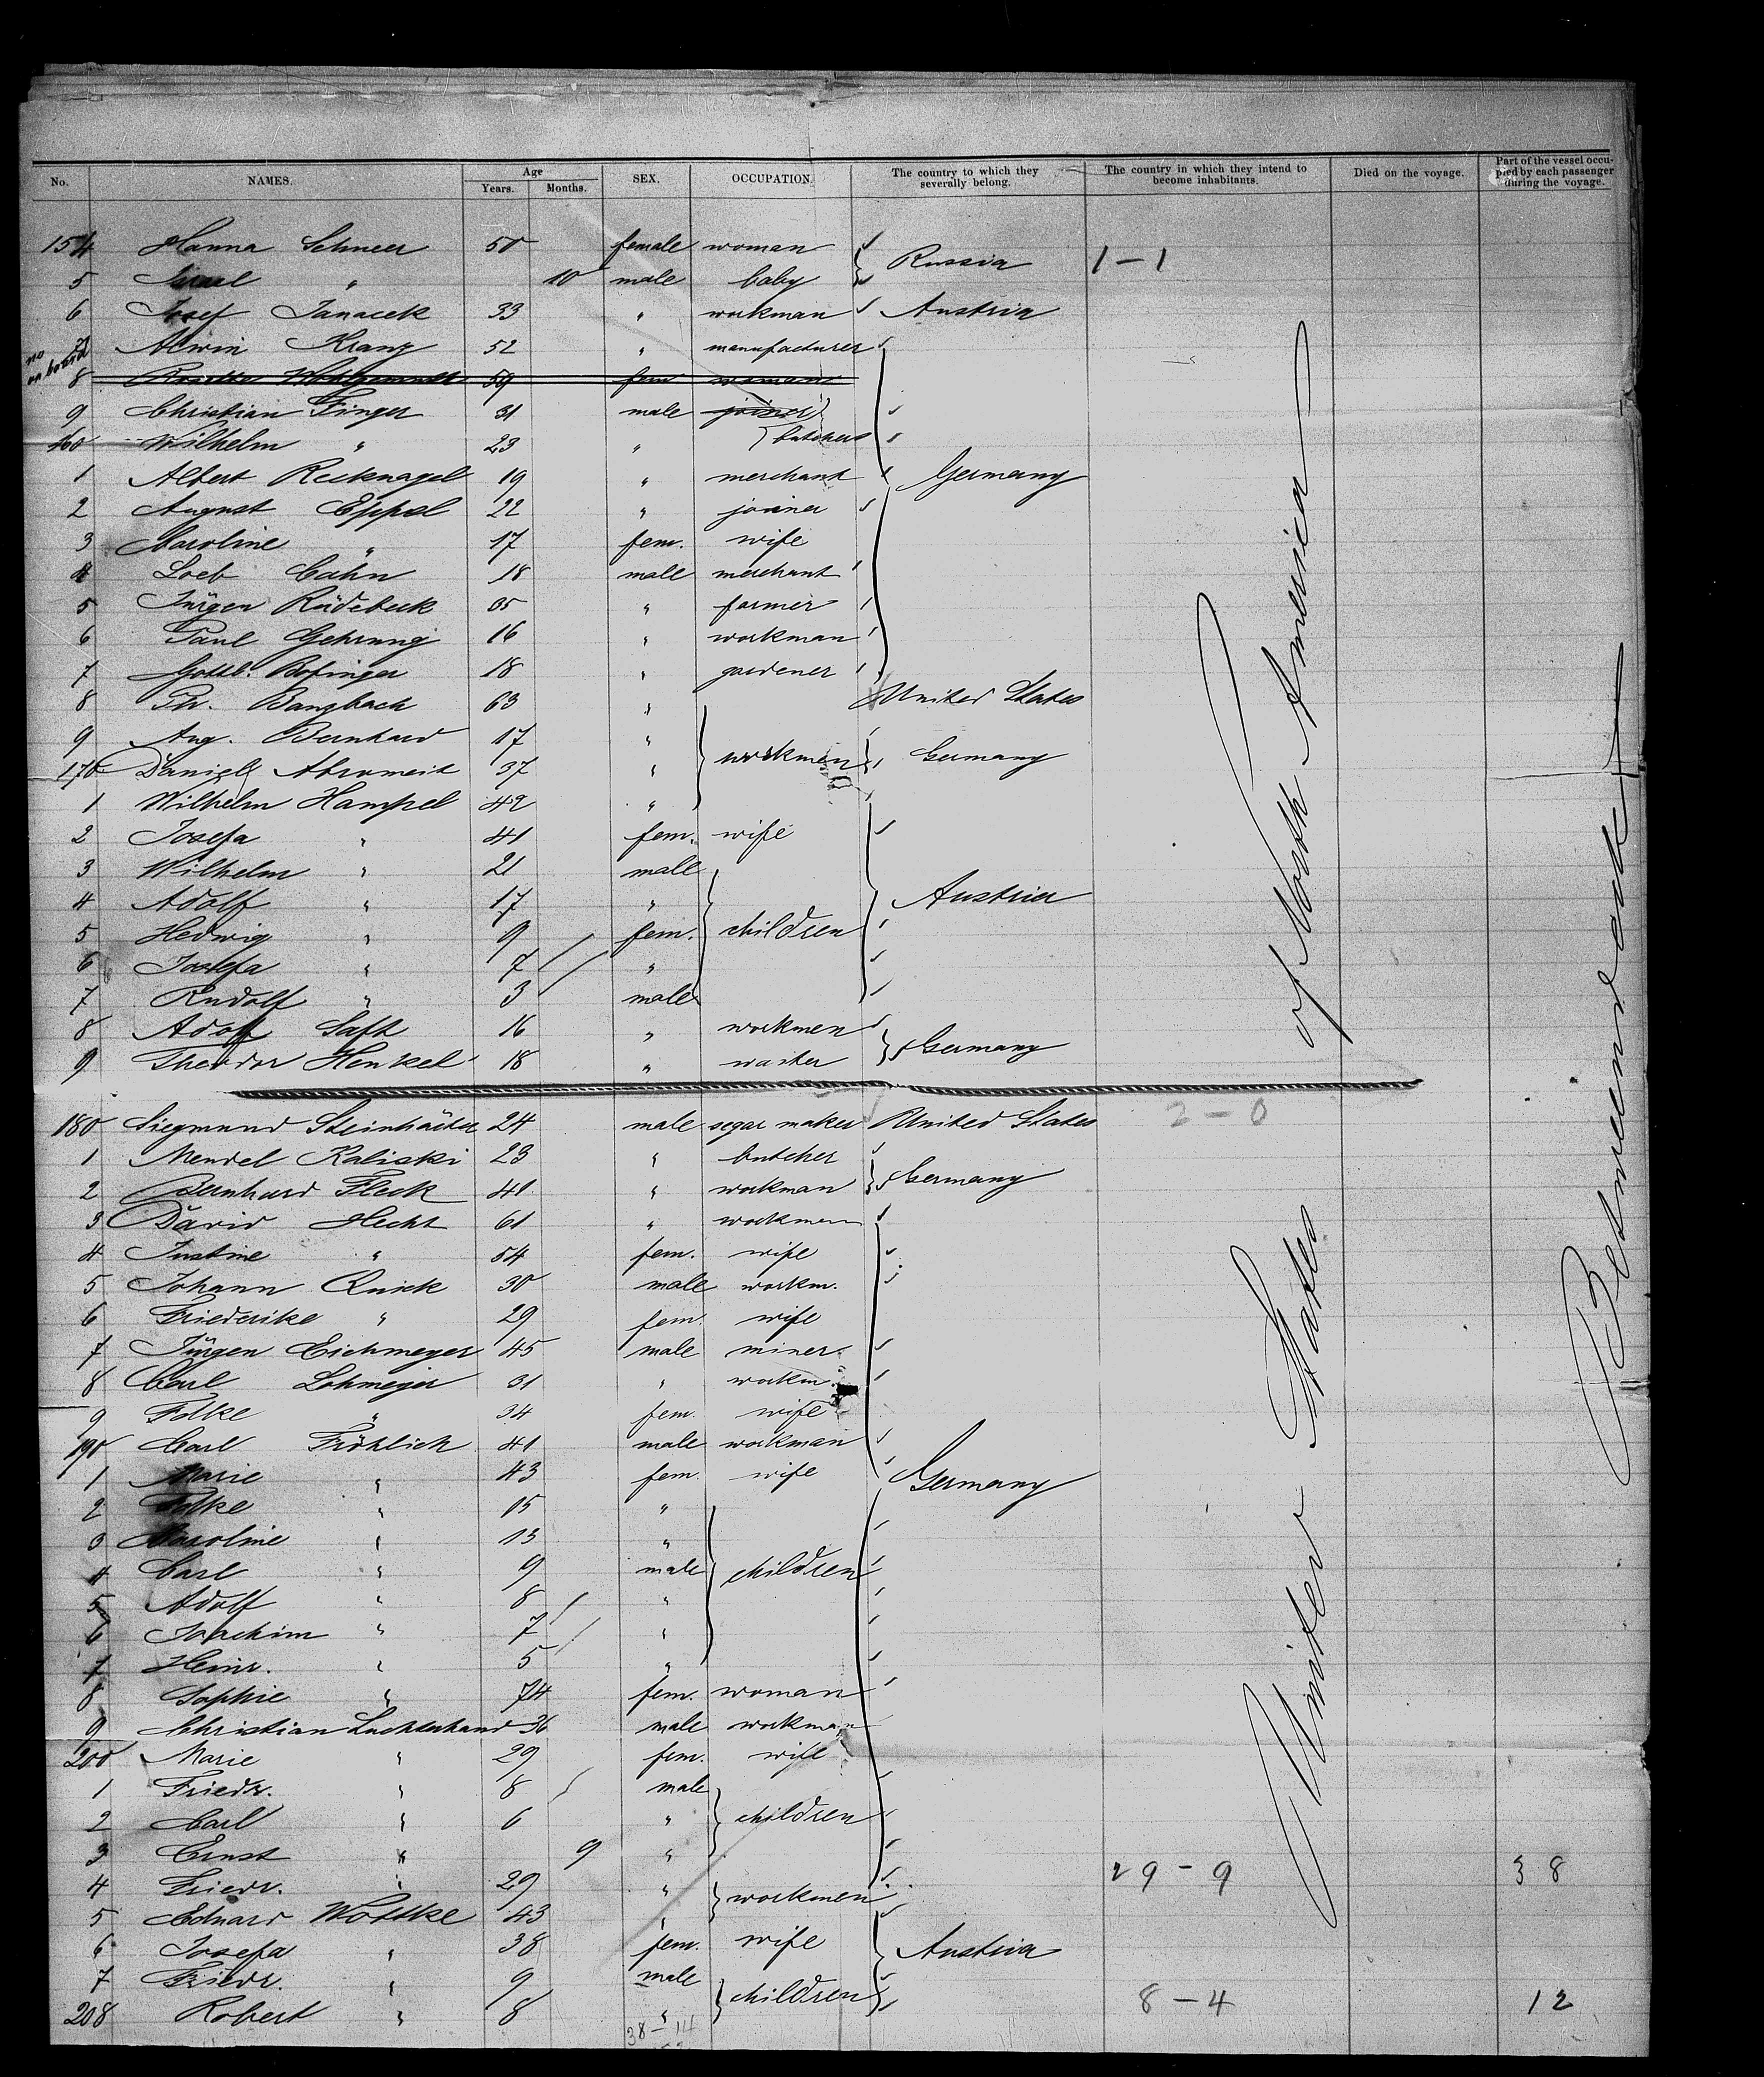 No. NAMES. Age Years. Months. SEX. OCCUPATION. The country to which they severally belong. The country in which they intend to become inhabitants. Died on the voyage. Part of the vessel occupied by each passenger during the voyage.
154 Hanna Schneer 50 female woman
Russia 1-1
5 Israel " 10 male baby
6 Josef Janacek 33 " workman Austria
no on board
7 Alwin Kranz 52 " manufacturer
8 59 fem woman
9 Christian Finger 31 male joiner
160 Wilhelm " 23 " butchers
1 Albert Recknagel 19 " merchant Germany
2 August Eppel 22 " joiner
3 Caroline " 17 fem. wife
4 Loeb Cahn 18 male merchant
5 Jürgen Rüdebeck 35 " farmer
6 Paul Gehrung 16 " workman
7 Gottlb. Bofinger 18 " gardener
8 Ph. Banzbach 63 " United States
9 Aug. Bernhard 17 "
170 Daniel Abromeit 37 " workmen Germany
1 Wilhelm Hampel 42 "
2 Josefa " 41 fem. wife
3 Wilhelm " 21 male
4 Adolf " 17 " Austria
5 Hedwig " 9 fem. children
6 Josefa " 7 "
7 Rudolf " 3 male
8 Adolf Saft 16 " workmen
9 Theodor Henkel 18 " Germany
180 Siegmund 24 male segar maker United States 2-0
1 Mendel Kaliski 23 " butcher
2 Bernhard Fleck 41 " workman Germany
3 David Hecht 61 " workmen
4 Justine " 54 fem. wife
5 Johann Quick 30 male workm.
6 Friederike " 29 fem. wife
7 Jürgen Eichmeyer 45 male miner
8 Carl Lohmeyer 31 " workm.
9 Folke " 34 fem. wife
190 Carl Fröhlich 41 male workman
1 Marie " 43 fem. wife Germany
2 Folke " 15 "
3 Caroline " 13 "
4 Carl " 9 male children
5 Adolf " 8 "
6 Joachim " 7 "
7 Heinr. " 5 "
8 Sophie " 74 fem. woman
9 Christian Luchterhand 36 male workman
200 Marie " 29 fem. wife
1 Friedr. " 8 male
2 Carl " 6 " children
3 Ernst " 9 "
29-9 38
4 Friedr. " 29 " workmen
5 Eduard Wottke 43 "
6 Josefa " 38 fem. wife Austria
7 Friedr. " 9 male
children
8-4 12
208 Robert " 8 "
38-14
United States of North America
Betweendeck